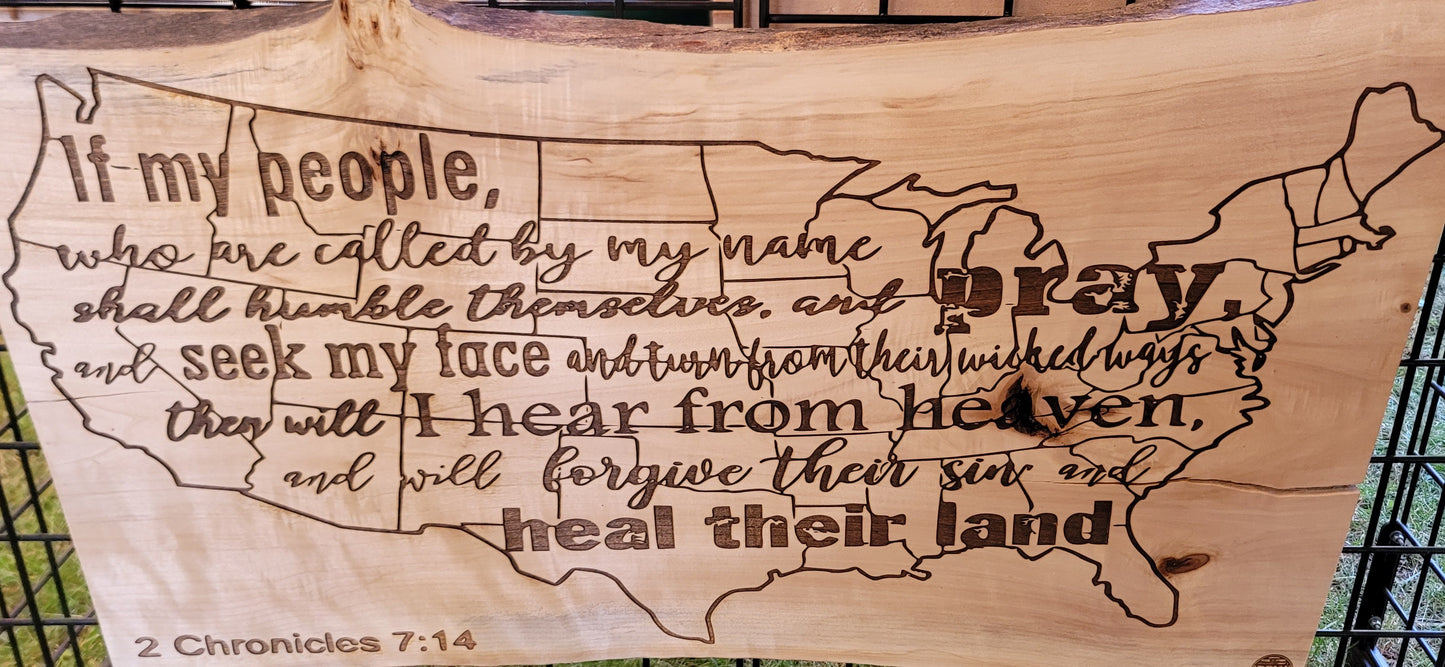 If my people,
who are called by my name
shall humble themselves, and pray,
and seek my face and turn from their wicked ways
then will I hear from heaven,
and will forgive their sin and
heal their land
2 Chronicles 7:14